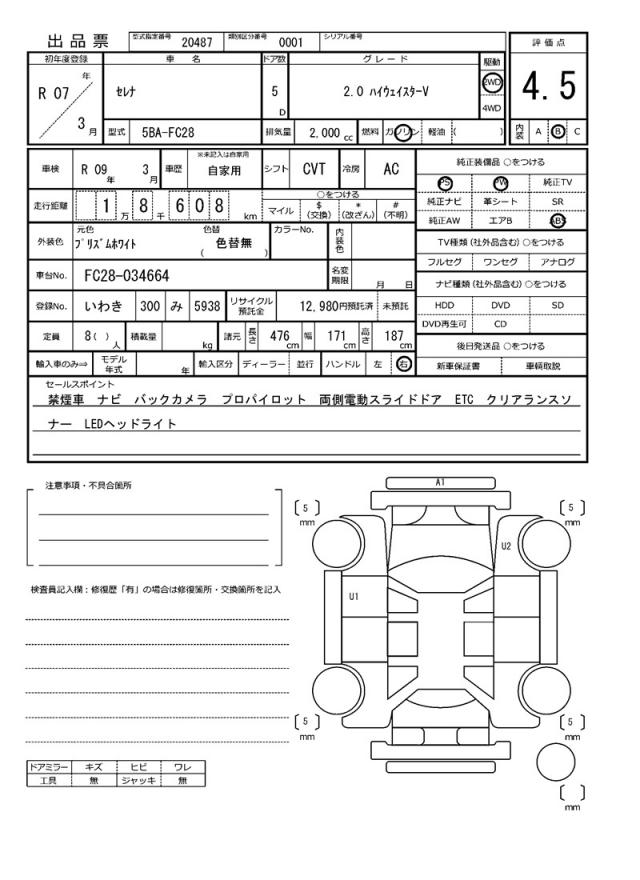 出 品 票
型式指定番号 20487 類別区分番号 0001 シリアル番号
評価点
4.5
初年度登録 車 名 ドア数 グレード 駆動
R 07 年 3 月
セレナ
5 D
2.0 ハイウェイスターV
2WD
4WD
型式 5BA-FC28 排気量 2,000 cc 燃料 ガソリン 軽油 ( )
内装 A B C
車検 R 09 年 3 月 車歴 ※未記入は自家用 自家用 シフト CVT 冷房 AC
走行距離 1 万 8 千 6 0 8 km
○をつける
マイル $(交換) *(改ざん) #(不明)
外装色 元色 プリズムホワイト 色替 ( 色替無 ) カラーNo. 内装色
車台No. FC28-034664 名変期限 月 日
登録No. いわき 300 み 5938 リサイクル預託金 12,980円預託済 未預託
定員 8( ) 人 積載量 kg 諸元 長さ 476 cm 幅 171 cm 高さ 187 cm
輸入車のみ⇒ モデル年式 年 輸入区分 ディーラー 並行 ハンドル 左 右
純正装備品 ○をつける
PS PW 純正TV
純正ナビ 革シート SR
純正AW エアB ABS
TV種類 (社外品含む) ○をつける
フルセグ ワンセグ アナログ
ナビ種類 (社外品含む) ○をつける
HDD DVD SD
DVD再生可 CD
後日発送品 ○をつける
新車保証書 車輌取説
セールスポイント
禁煙車 ナビ バックカメラ プロパイロット 両側電動スライドドア ETC クリアランスソ
ナー LEDヘッドライト
注意事項・不具合箇所
検査員記入欄：修復歴「有」の場合は修復箇所・交換箇所を記入
A1
〔 5 〕 mm
〔 5 〕 mm
U2
U1
〔 5 〕 mm
〔 5 〕 mm
〔 〕 mm
ドアミラー キズ ヒビ ワレ
工具 無 ジャッキ 無